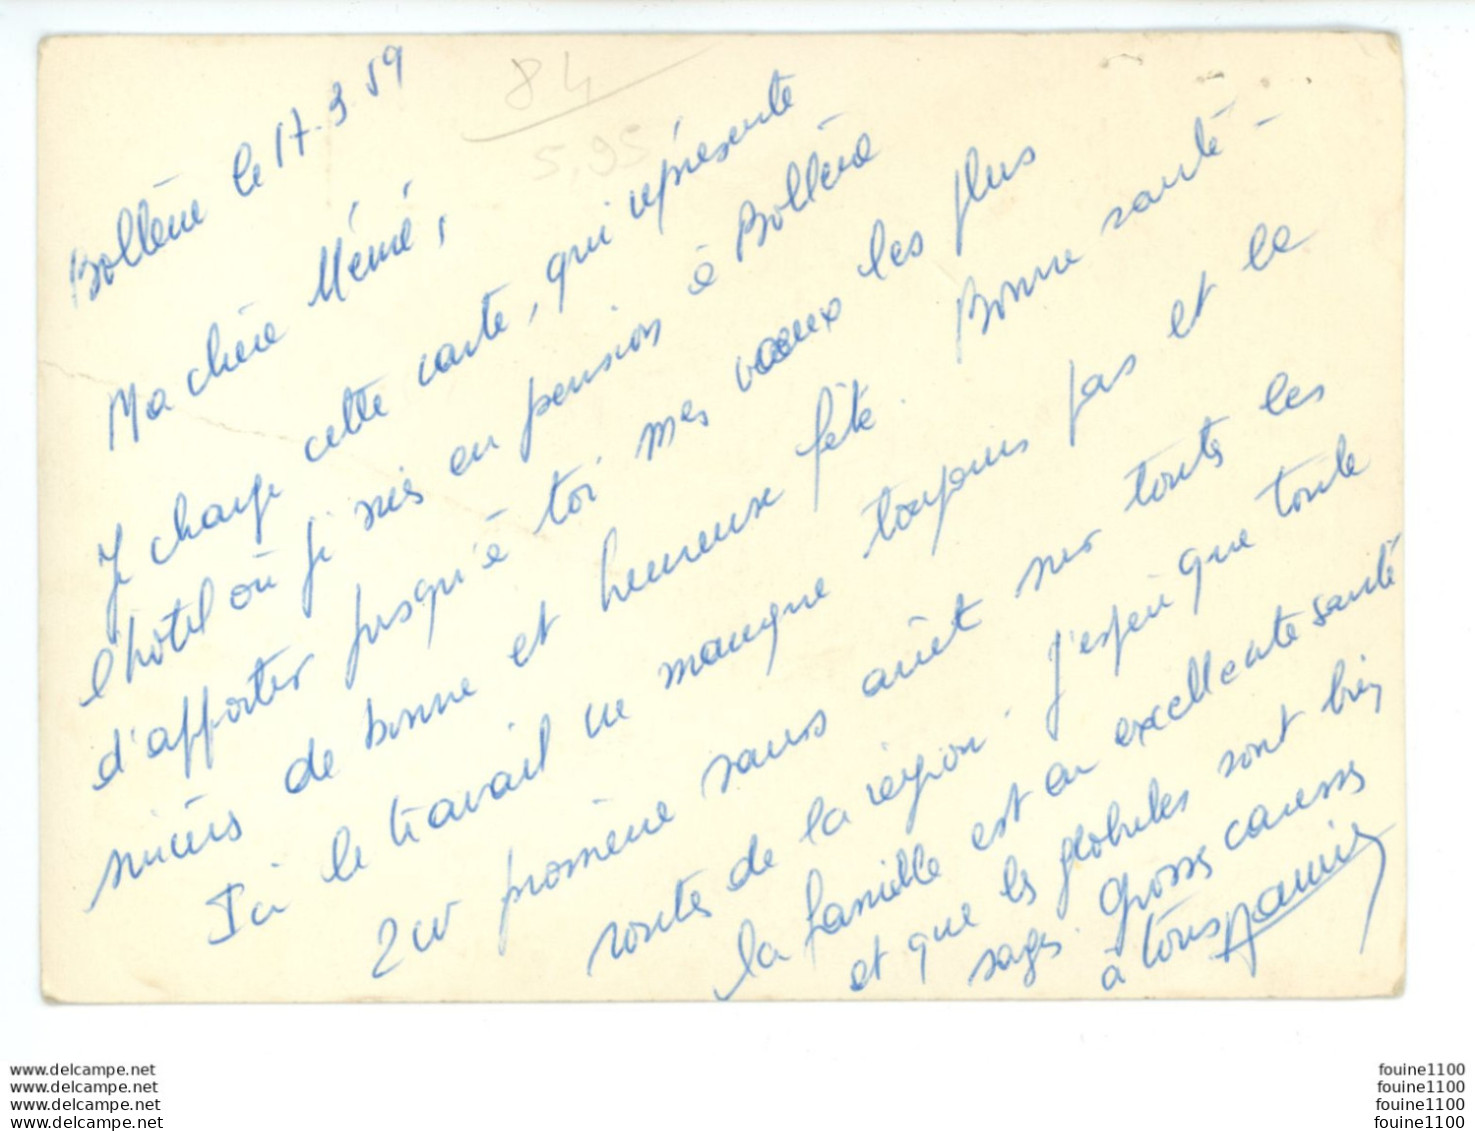 Bollène le 17.3.59
84
5,95
Ma chère Mémé,
Je charge cette carte, qui représente
l'hôtel où je suis en pension à Bollène
d'apporter jusqu'à toi mes vœux les plus
sincères de bonne et heureuse fête. Bonne santé -
Ici le travail ne manque toujours pas et la
2cv promène sans arrêt sur toutes les
routes de la région. J'espère que toute
la famille est en excellente santé
et que les globules sont bien
sages. Grosses caresses
à tous
www.delcampe.net
www.delcampe.net
www.delcampe.net
www.delcampe.net
fouine1100
fouine1100
fouine1100
fouine1100